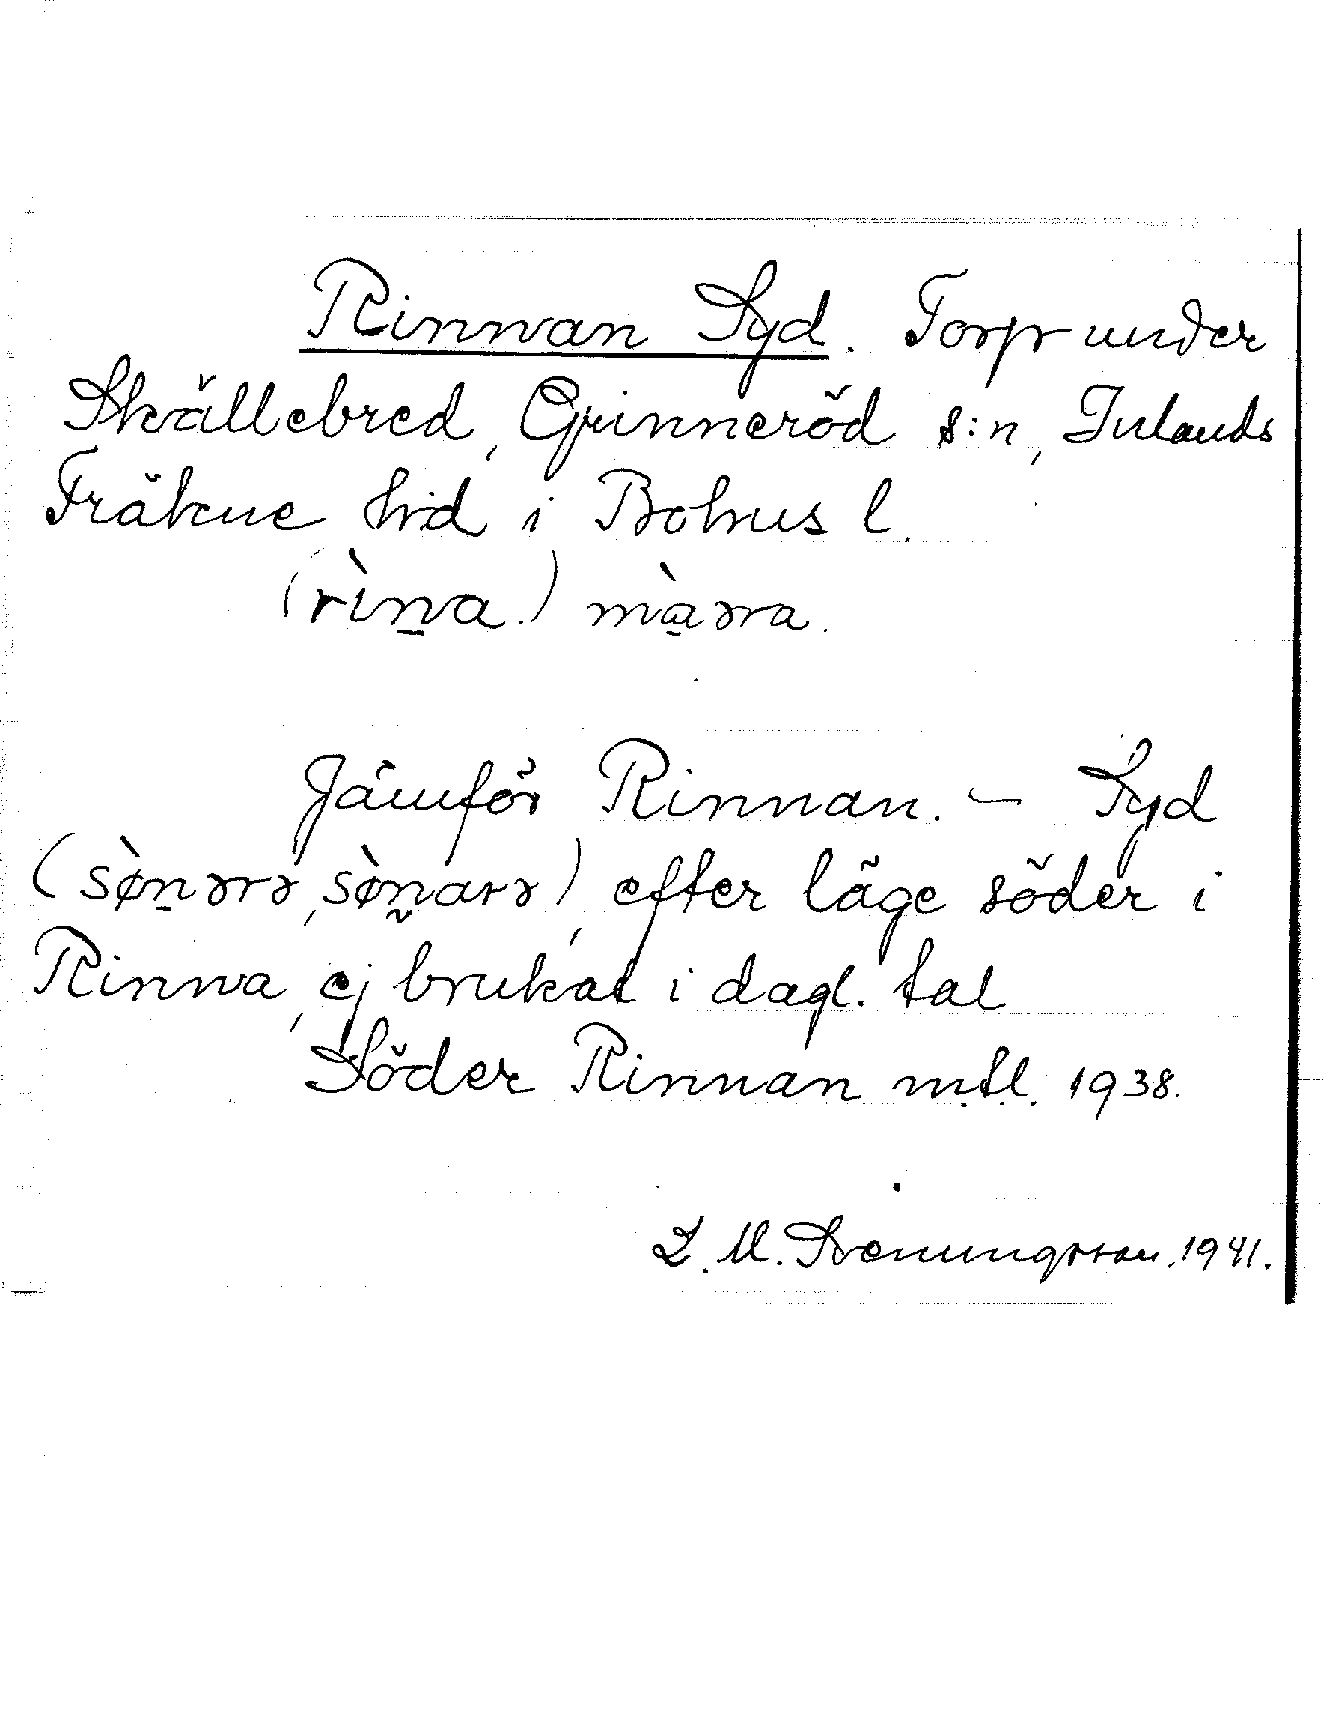 Rinnan Syd. Torp under
Skällebred, Grinneröd s:n, Inlands
Fräkne hrd i Bohus l.
(rìn̠a.) mà̠ərna.
Jämför Rinnan. – Syd
(sø̀n̠ərə, sø̀n̰arə), efter läge söder i
Rinna, ej brukat i dagl. tal
Söder Rinnan mtl. 1938.
L. M. Svenungsson. 1941.